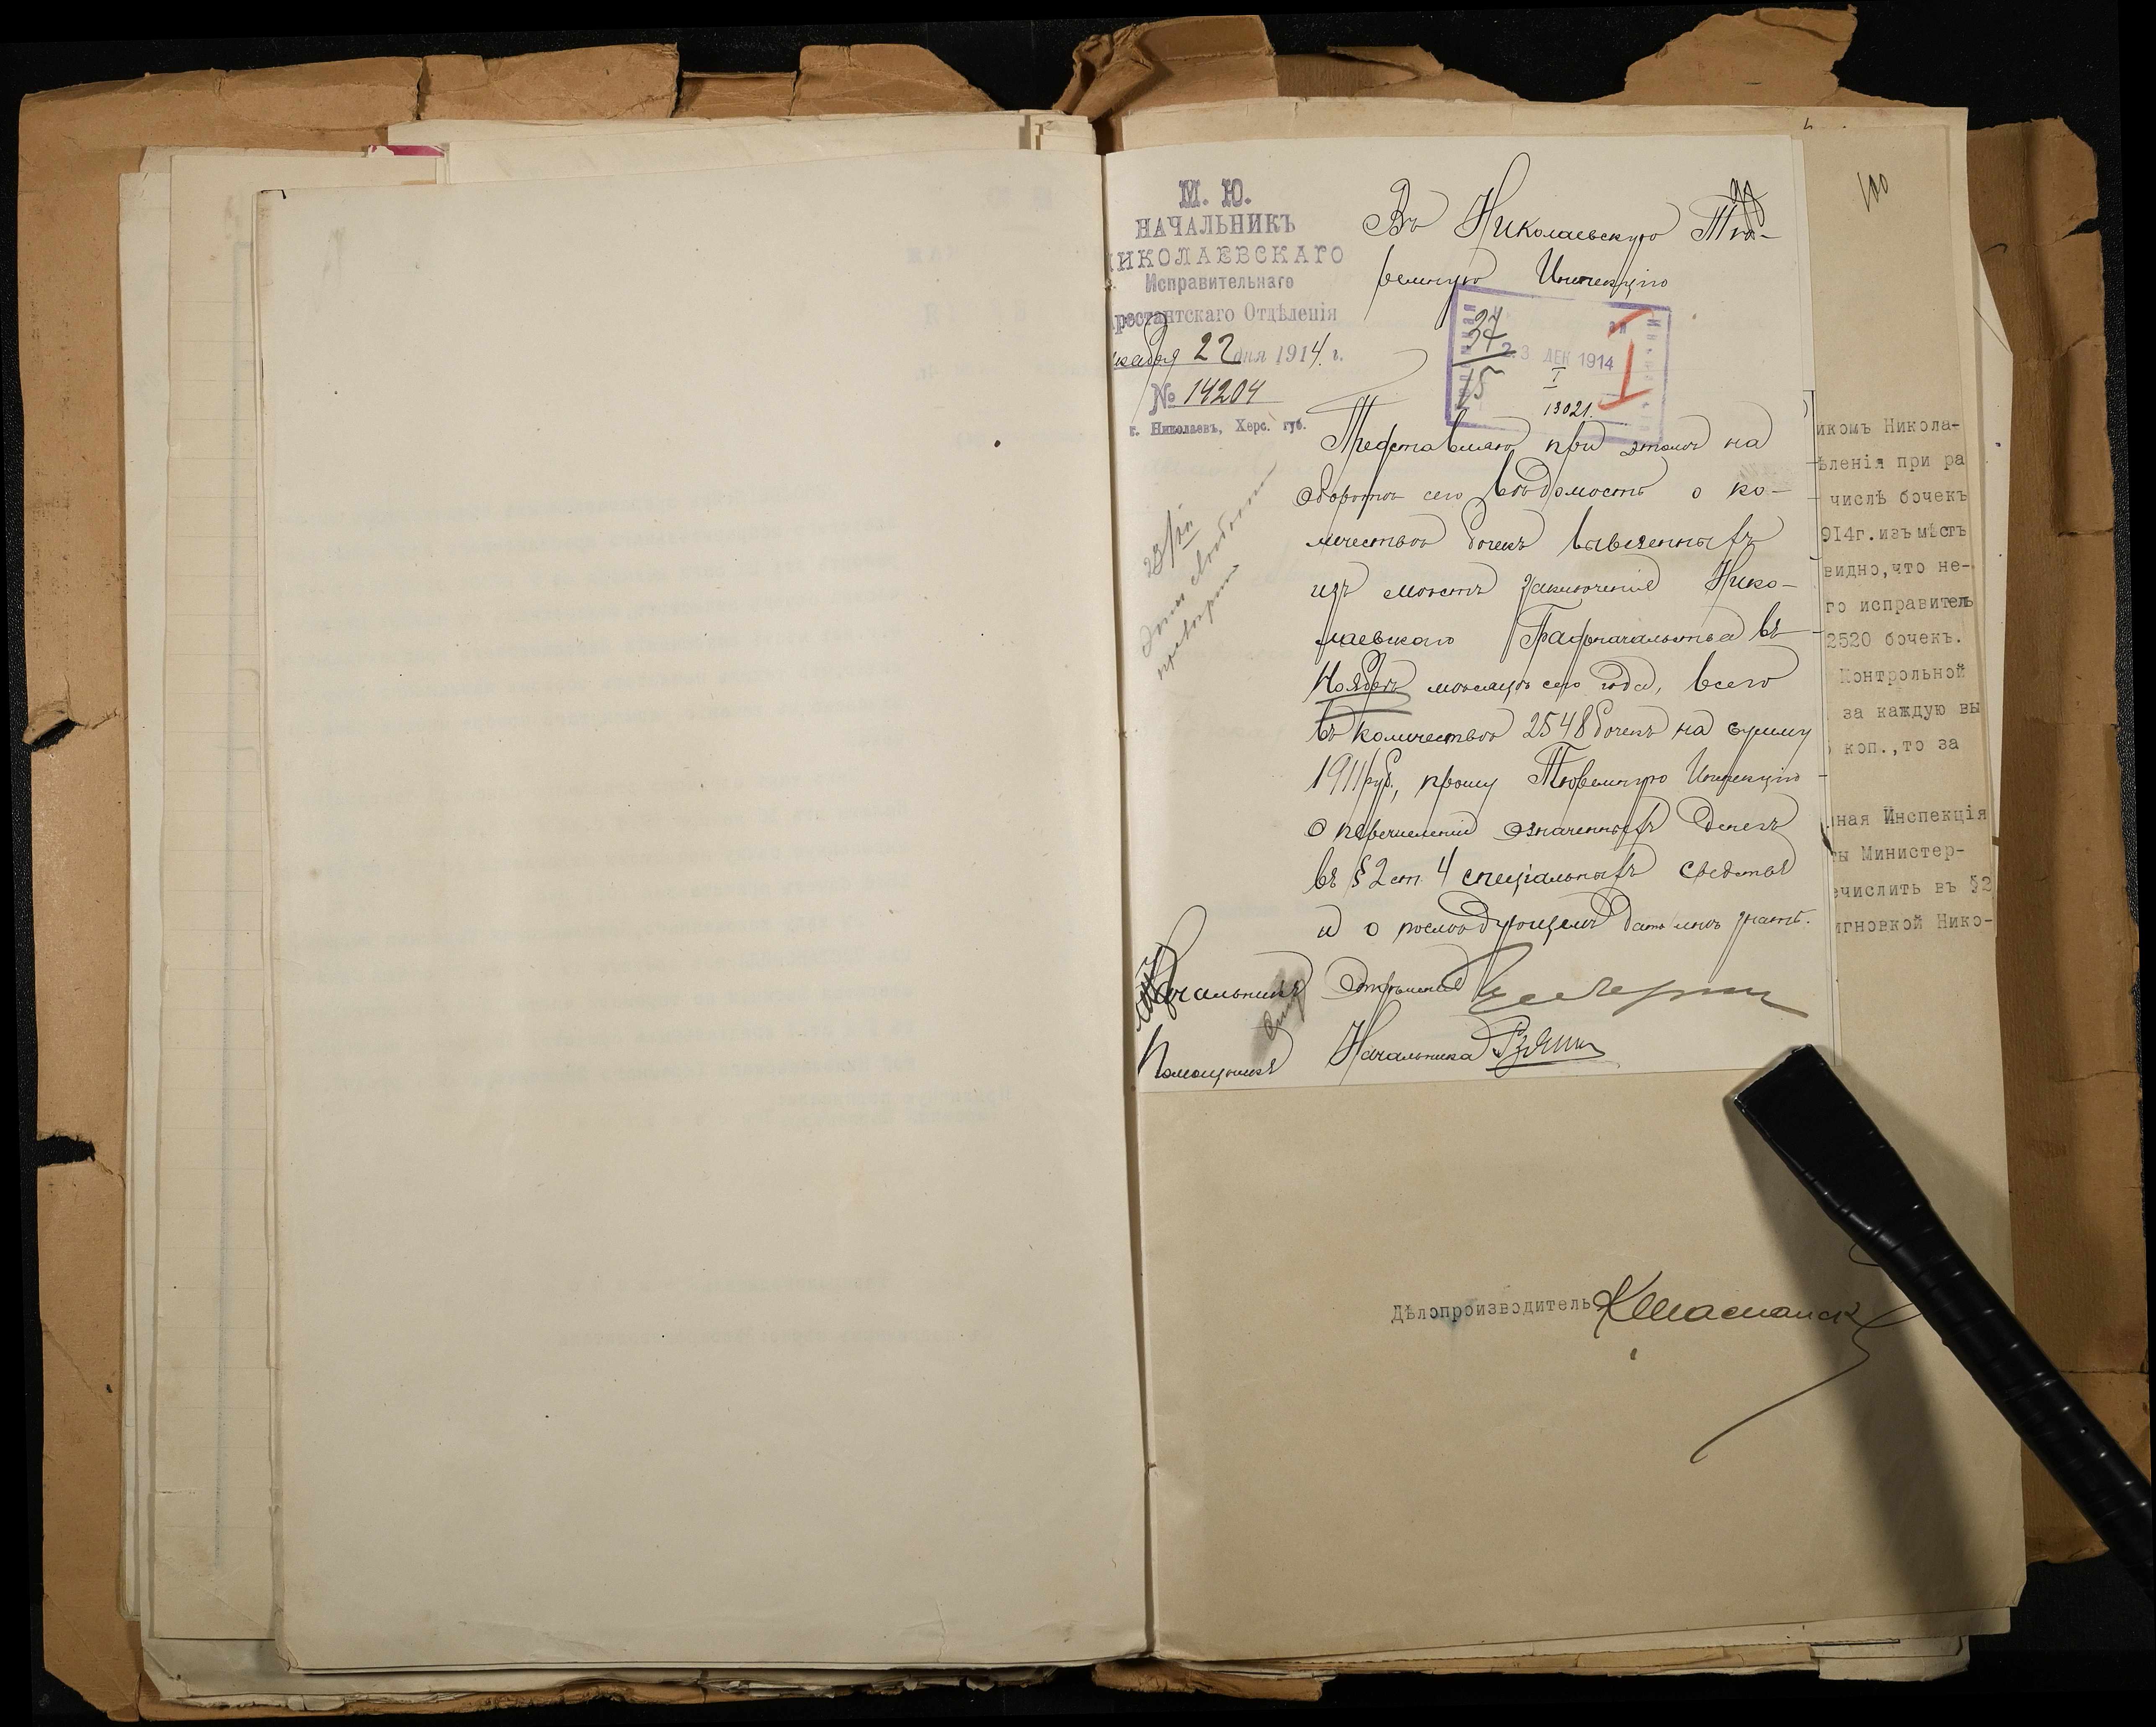 М. Ю.
НАЧАЛЬНИКЪ
НИКОЛАЕВСКАГО
Исправительнаго
Арестантскаго Отдѣленія
декабря 22 дня 1914 г.
№ 14204
г. Николаевъ, Херс. губ.
Въ Николаевскую Тю-
ремную Инспекцію
37
15
23 ДЕК 1914
I
I
13021.
Представляю при этомъ на
оборотѣ сего вѣдомость о ко-
личествѣ бочекъ вывезенныхъ
изъ мѣстъ заключенія Нико-
лаевскаго Градоначальства въ
Ноябрѣ мѣсяцѣ сего года, всего
въ количествѣ 2548 бочекъ на сумму
1911 руб., прошу Тюремную Инспекцію
о перечисленіи означенныхъ денегъ
въ § 2 ст. 4 спеціальныхъ средствъ
и о послѣдующемъ дать мнѣ знать.
Начальникъ Отдѣленія
Помощникъ Начальника
23/XII
100
икомъ Никола-
ѣленія при ра
числѣ бочекъ
914г.изъ мѣстъ
видно,что не-
го исправитель
2520 бочекъ.
Контрольной
за каждую вы
коп.,то за
ная Инспекція
ты Министер-
ечислить въ §2
игновкой Нико-
Дѣлопроизводитель